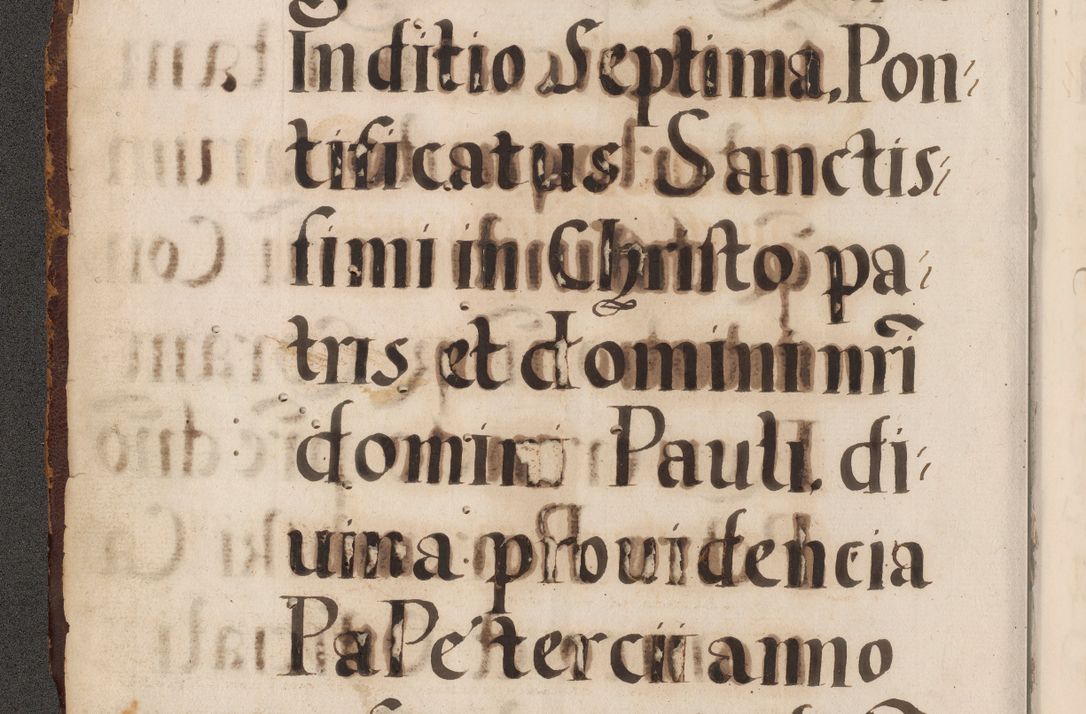 Inditio Septima, Pon-
tificatus Sanctis-
simi in Christo pa-
tris et domini nr̃i
domini Pauli. di-
uina prouidencia
PaPe tercii anno